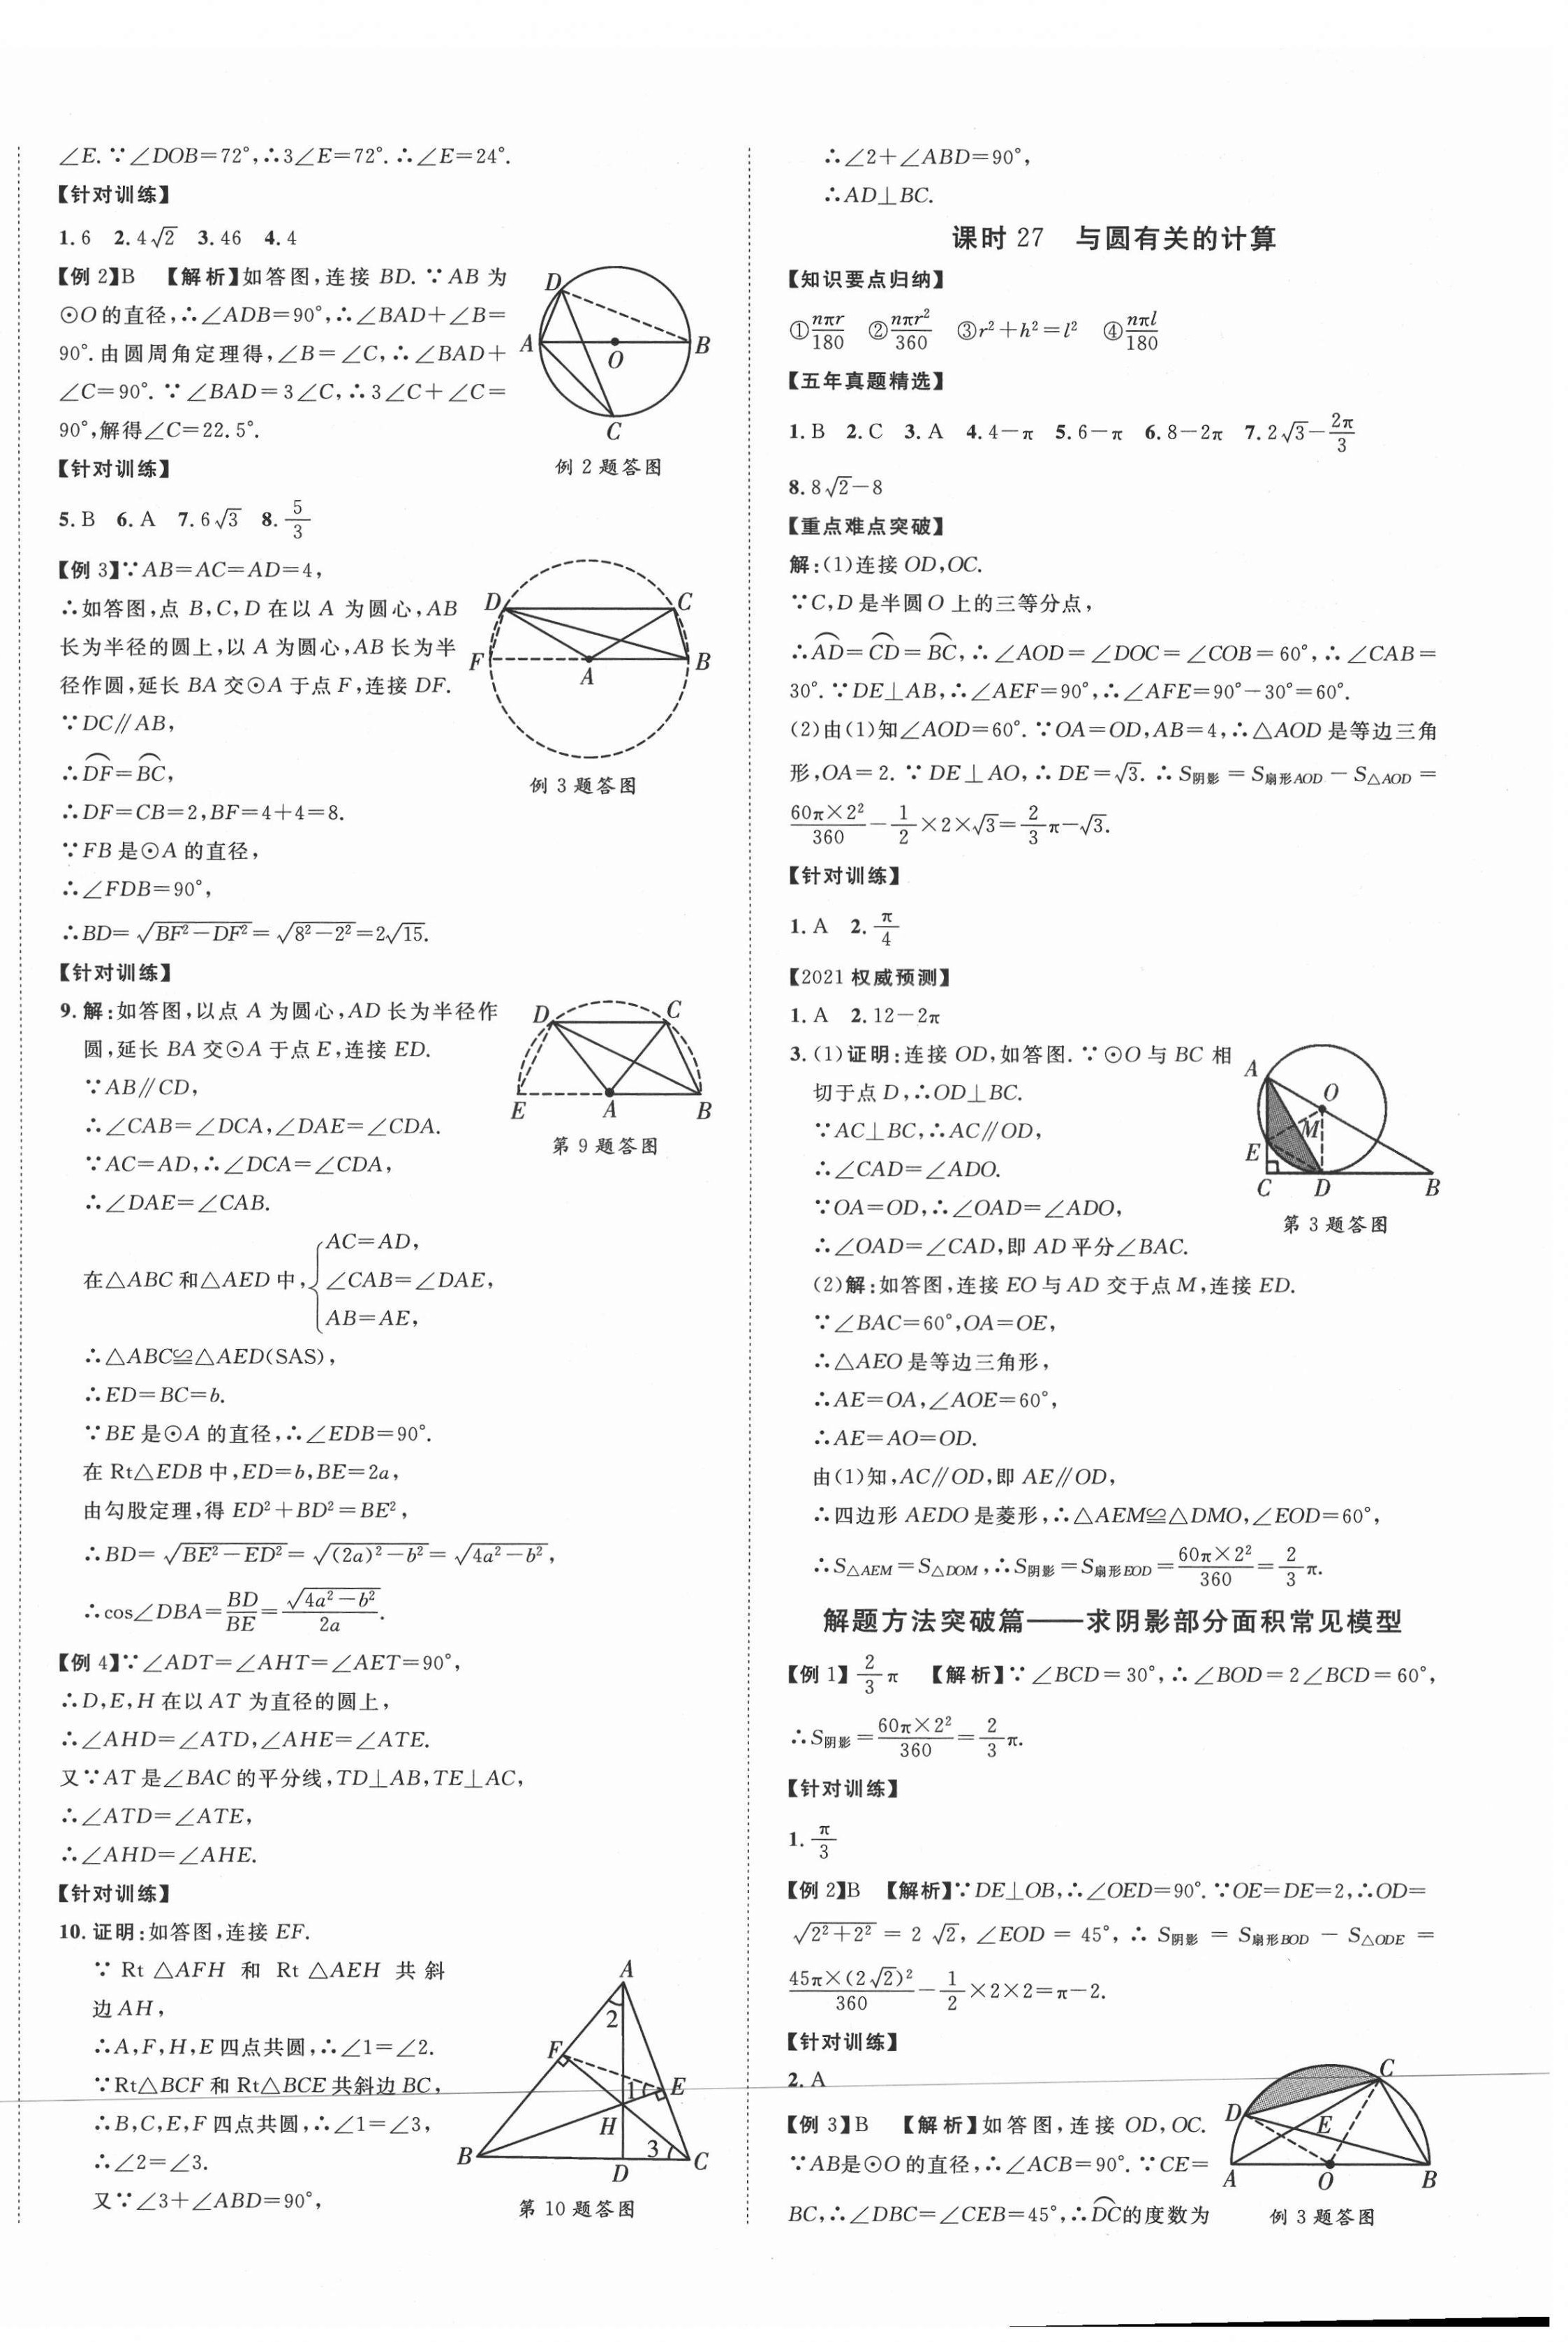 ∠E.∵∠DOB=72°,∴3∠E=72°.∴∠E=24°.
【针对训练】
1.6  2.4√2  3.46  4.4
【例2】B  【解析】如答图,连接BD.∵AB为
⊙O的直径,∴∠ADB=90°,∴∠BAD+∠B=
90°.由圆周角定理得,∠B=∠C,∴∠BAD+
∠C=90°.∵∠BAD=3∠C,∴3∠C+∠C=
90°,解得∠C=22.5°.
D
A
O
B
C
例2题答图
【针对训练】
5.B  6.A  7.6√3  8.5/3
【例3】∵AB=AC=AD=4,
∴如答图,点B,C,D在以A为圆心,AB
长为半径的圆上,以A为圆心,AB长为半
径作圆,延长BA交⊙A于点F,连接DF.
∵DC∥AB,
∴⌒DF=⌒BC,
∴DF=CB=2,BF=4+4=8.
∵FB是⊙A的直径,
∴∠FDB=90°,
∴BD=√(BF²-DF²)=√(8²-2²)=2√15.
D
C
F
A
B
例3题答图
【针对训练】
9.解:如答图,以点A为圆心,AD长为半径作
圆,延长BA交⊙A于点E,连接ED.
∵AB∥CD,
∴∠CAB=∠DCA,∠DAE=∠CDA.
∵AC=AD,∴∠DCA=∠CDA,
∴∠DAE=∠CAB.
D
C
E
A
B
第9题答图
AC=AD,
在△ABC和△AED中,{∠CAB=∠DAE,
AB=AE,
∴△ABC≌△AED(SAS),
∴ED=BC=b.
∵BE是⊙A的直径,∴∠EDB=90°.
在Rt△EDB中,ED=b,BE=2a,
由勾股定理,得ED²+BD²=BE²,
∴BD=√(BE²-ED²)=√((2a)²-b²)=√(4a²-b²),
∴cos∠DBA=BD/BE=√(4a²-b²)/2a.
【例4】∵∠ADT=∠AHT=∠AET=90°,
∴D,E,H在以AT为直径的圆上,
∴∠AHD=∠ATD,∠AHE=∠ATE.
又∵AT是∠BAC的平分线,TD⊥AB,TE⊥AC,
∴∠ATD=∠ATE,
∴∠AHD=∠AHE.
【针对训练】
10.证明:如答图,连接EF.
∵Rt△AFH和Rt△AEH共斜
边AH,
∴A,F,H,E四点共圆,∴∠1=∠2.
∵Rt△BCF和Rt△BCE共斜边BC,
∴B,C,E,F四点共圆,∴∠1=∠3,
∴∠2=∠3.
又∵∠3+∠ABD=90°,
A
2
F
1
E
H
B
3
D
C
第10题答图
∴∠2+∠ABD=90°,
∴AD⊥BC.
课时27  与圆有关的计算
【知识要点归纳】
①nπr/180  ②nπr²/360  ③r²+h²=l²  ④nπl/180
【五年真题精选】
1.B  2.C  3.A  4.4-π  5.6-π  6.8-2π  7.2√3-2π/3
8.8√2-8
【重点难点突破】
解:(1)连接OD,OC.
∵C,D是半圆O上的三等分点,
∴⌒AD=⌒CD=⌒BC,∴∠AOD=∠DOC=∠COB=60°,∴∠CAB=
30°.∵DE⊥AB,∴∠AEF=90°,∴∠AFE=90°-30°=60°.
(2)由(1)知∠AOD=60°.∵OA=OD,AB=4,∴△AOD是等边三角
形,OA=2.∵DE⊥AO,∴DE=√3.∴S阴影=S扇形AOD-S△AOD=
60π×2²/360-1/2×2×√3=2/3π-√3.
【针对训练】
1.A  2.π/4
【2021权威预测】
1.A  2.12-2π
3.(1)证明:连接OD,如答图.∵⊙O与BC相
切于点D,∴OD⊥BC.
∵AC⊥BC,∴AC∥OD,
∴∠CAD=∠ADO.
∵OA=OD,∴∠OAD=∠ADO,
∴∠OAD=∠CAD,即AD平分∠BAC.
A
O
M
E
C
D
B
第3题答图
(2)解:如答图,连接EO与AD交于点M,连接ED.
∵∠BAC=60°,OA=OE,
∴△AEO是等边三角形,
∴AE=OA,∠AOE=60°,
∴AE=AO=OD.
由(1)知,AC∥OD,即AE∥OD,
∴四边形AEDO是菱形,∴△AEM≌△DMO,∠EOD=60°,
∴S△AEM=S△DOM,∴S阴影=S扇形EOD=60π×2²/360=2/3π.
解题方法突破篇——求阴影部分面积常见模型
【例1】2/3π  【解析】∵∠BCD=30°,∴∠BOD=2∠BCD=60°,
∴S阴影=60π×2²/360=2/3π.
【针对训练】
1.π/3
【例2】B  【解析】∵DE⊥OB,∴∠OED=90°.∵OE=DE=2,∴OD=
√(2²+2²)=2√2,∠EOD=45°,∴S阴影=S扇形BOD-S△ODE=
45π×(2√2)²/360-1/2×2×2=π-2.
【针对训练】
2.A
【例3】B  【解析】如答图,连接OD,OC.
∵AB是⊙O的直径,∴∠ACB=90°.∵CE=
BC,∴∠DBC=∠CEB=45°,∴⌒DC的度数为
C
D
E
A
O
B
例3题答图